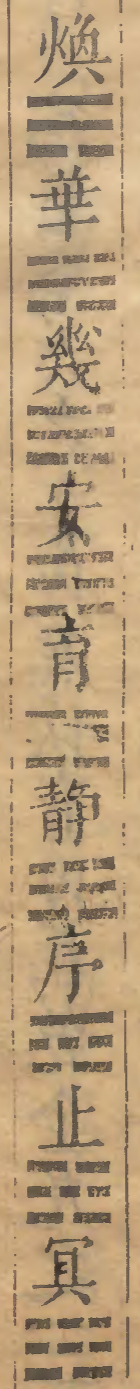 煥華幾安育靜序止冥